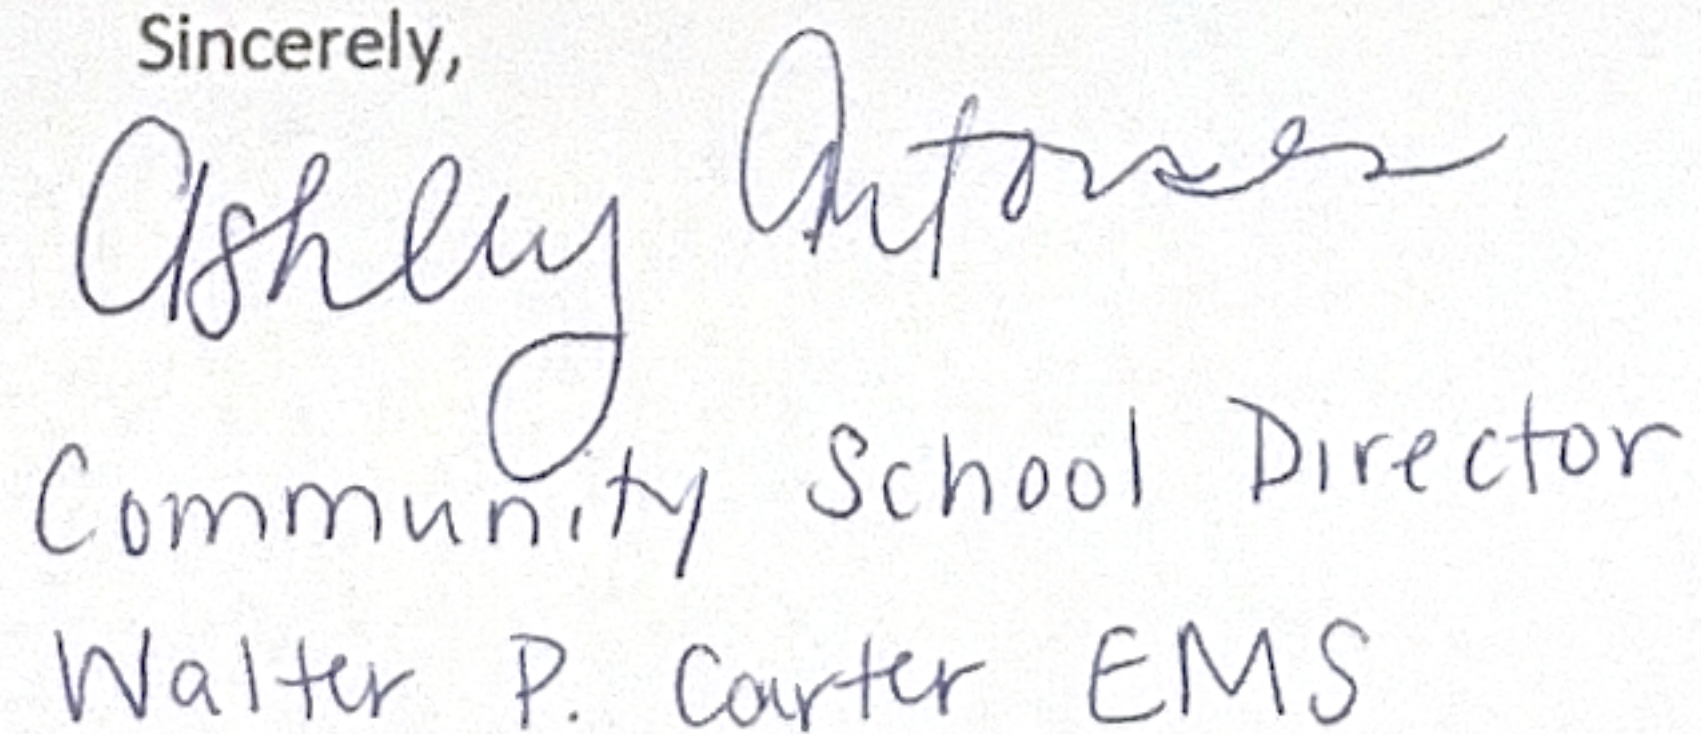 Sincerely,
Ashley
Community School Director
Walter P. Carter EMS